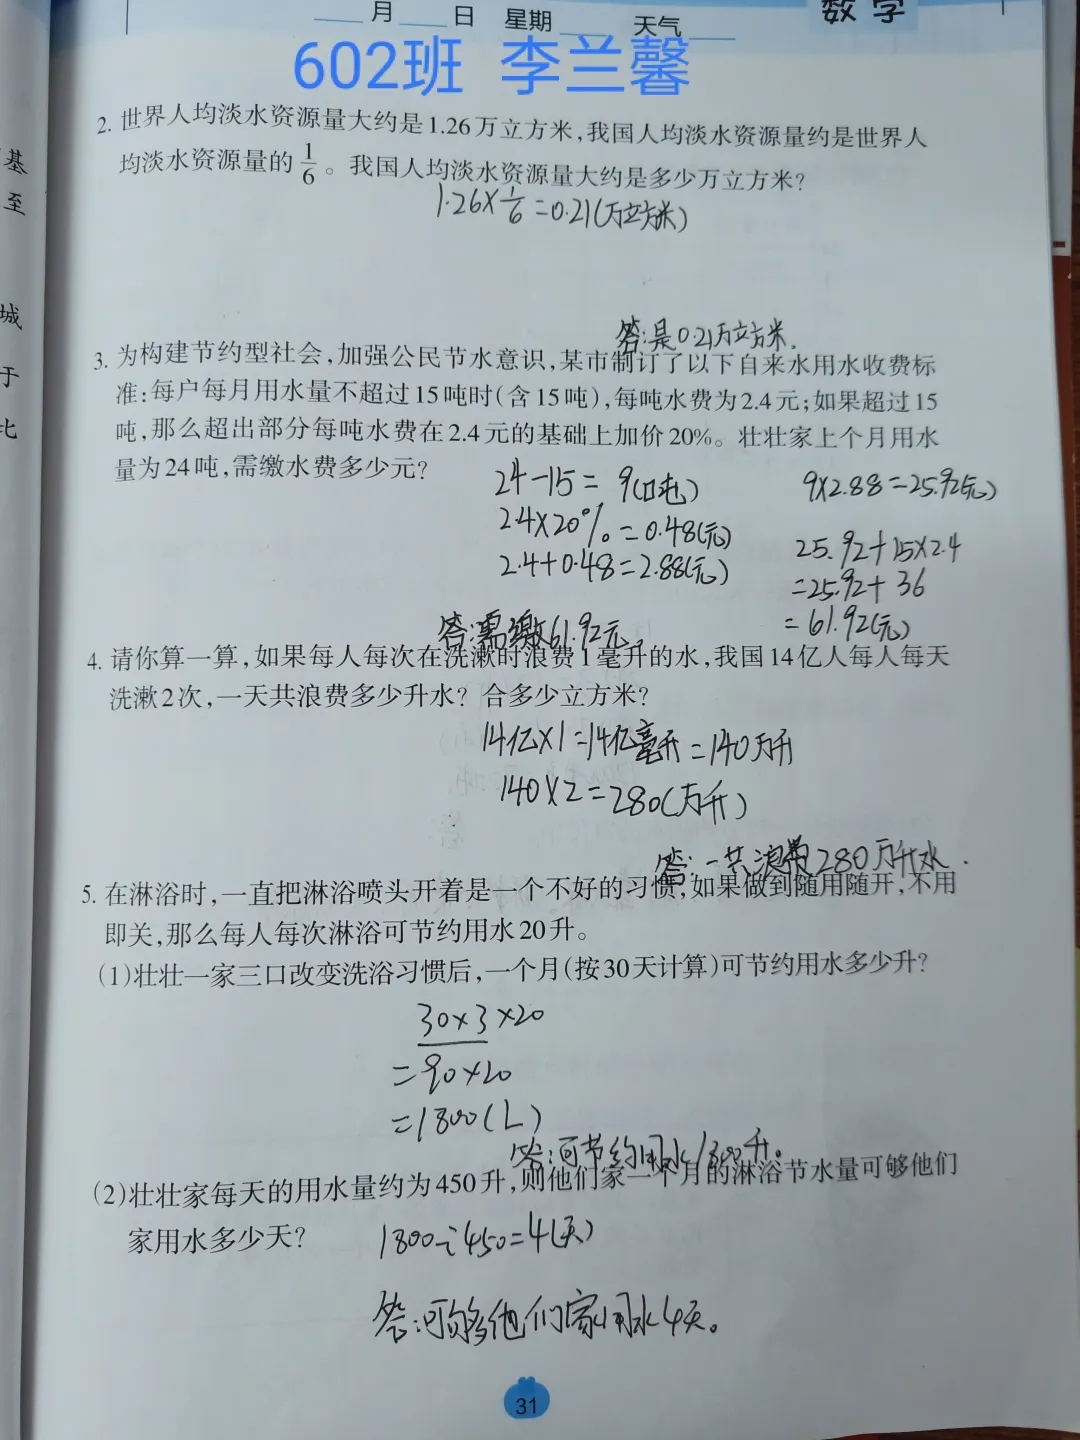 月 日 星期 天气
数学
602班 李兰馨
基
至
城
于
比
2. 世界人均淡水资源量大约是1.26万立方米,我国人均淡水资源量约是世界人
均淡水资源量的1/6。我国人均淡水资源量大约是多少万立方米?
1.26×1/6=0.21(万立方米)
答:是0.21万立方米.
3. 为构建节约型社会,加强公民节水意识,某市制订了以下自来水用水收费标
准:每户每月用水量不超过15吨时(含15吨),每吨水费为2.4元;如果超过15
吨,那么超出部分每吨水费在2.4元的基础上加价20%。壮壮家上个月用水
量为24吨,需缴水费多少元?
24-15=9(吨)
2.4×20%=0.48(元)
2.4+0.48=2.88(元)
9×2.88=25.92(元)
25.92+15×2.4
=25.92+36
=61.92(元)
答:需缴61.92元.
4. 请你算一算,如果每人每次在洗漱时浪费1毫升的水,我国14亿人每人每天
洗漱2次,一天共浪费多少升水?合多少立方米?
14亿×1=14亿毫升=140万升
140×2=280(万升)
答:一共浪费280万升水.
5. 在淋浴时,一直把淋浴喷头开着是一个不好的习惯,如果做到随用随开,不用
即关,那么每人每次淋浴可节约用水20升。
(1)壮壮一家三口改变洗浴习惯后,一个月(按30天计算)可节约用水多少升?
30×3×20
=90×20
=1800(L)
答:可节约用水1800升。
(2)壮壮家每天的用水量约为450升,则他们家一个月的淋浴节水量可够他们
家用水多少天?
1800÷450=4(天)
答:可够他们家用水4天。
31